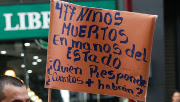 LIBRE
477 NIÑOS
MUERTOS
En manos del
Estado
¿Quien Responde
¿cuántos + habrán?